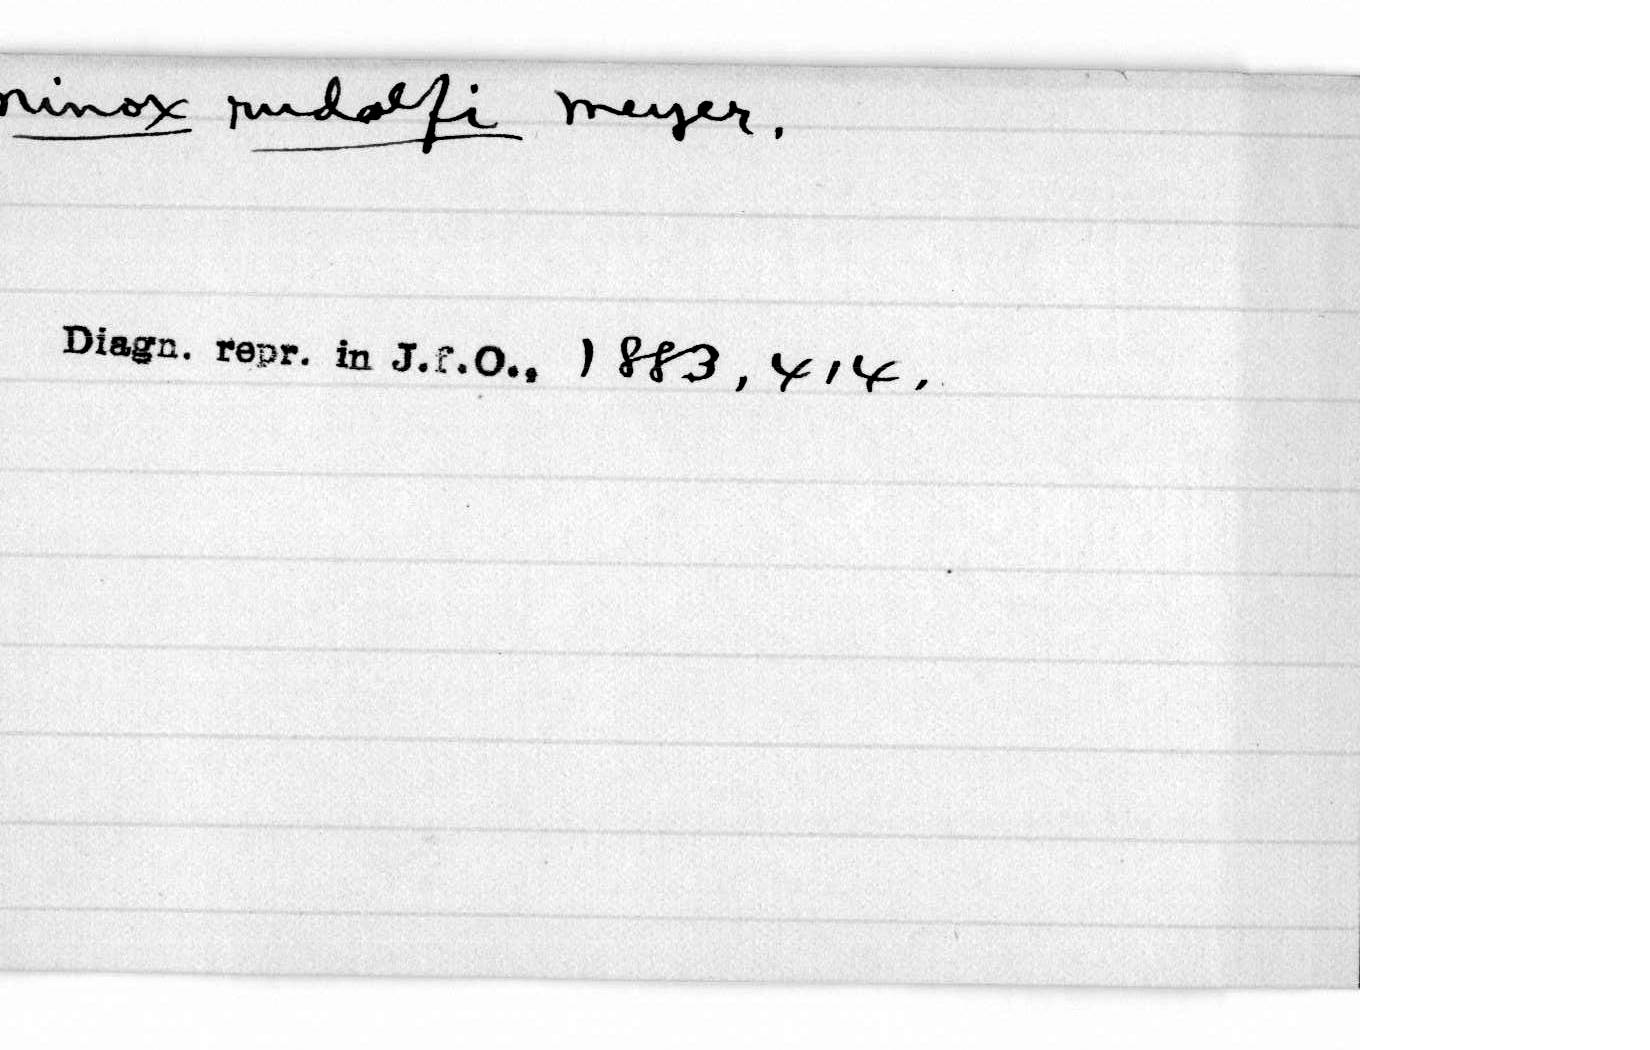 Ninox rudolfi Meyer.
Diagn. repr. in J.f.O., 1883, 414.